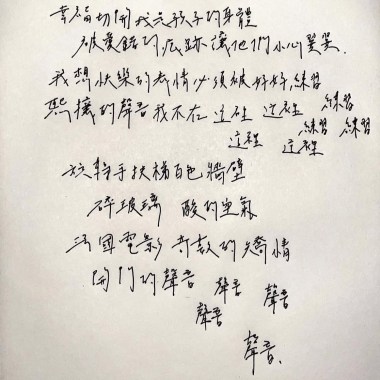 幸福切開我是孩子的身體
被愛過的痕跡讓他們小心翼翼.
我想快樂的表情必須被好好,練習
熙攘的聲音我不在 這裡 這裡 練習
這裡 這裡 練習 練習
旋轉手扶梯白色牆壁
碎玻璃 酸的空氣
法國電影 奇款的矯情
開門的聲音 聲音 聲音
聲音
聲音.